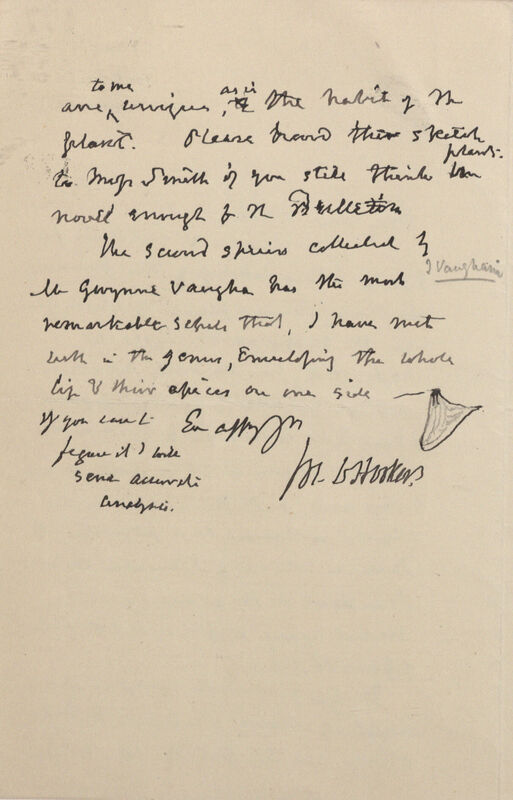 to me as is
are unique, & the habit of the
plant. Please hand these sketch
plants.
to Miss Smith if you still think
novel enough for the Bulletin
The second species collected by
I Vaughanii
Mr Gwynne Vaughan has the most
remarkable sepals that, I have met
with in the genus, Enveloping the whole
lip & their apices on one side
If you can't Ever affly yrs
figure it I will
send accurate
analysis.
Jos. D Hooker